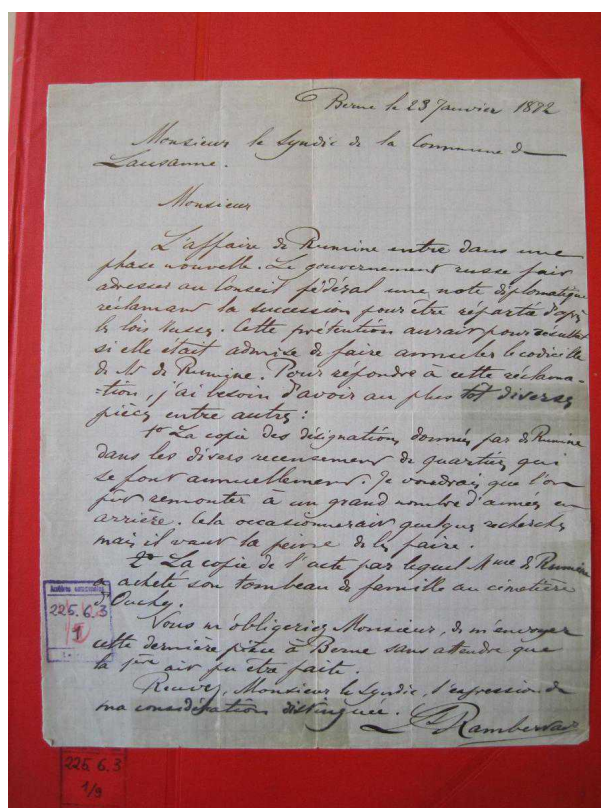 Berne le 23 Janvier 1882
Monsieur le Syndic de la Commune de
Lausanne.
Monsieur
L'affaire de Rumine entre dans une
phase nouvelle. Le gouvernement russe fait
adresser au Conseil fédéral une note diplomatique
réclamant la succession pour être répartie d'après
les lois russes. Cette prétention aurait pour résultat
si elle était admise de faire annuler le codicille
de Mr de Rumine. Pour répondre à cette réclama-
=tion, j'ai besoin d'avoir au plus tot diverses
pièces entre autres :
1o La copie des désignations données par de Rumine
dans les divers recensement de quartiers qui
se font annuellement. Je voudrais que l'on
pût remonter à un grand nombre d'années en
arrière. Cela occasionnerait quelques recherches
mais il vaut la peine de les faire.
2o La copie de l'acte par lequel Mme de Rumine
a acheté son tombeau de famille au cimetière
d'Ouchy.
Vous m'obligeriez Monsieur, de m'envoyer
cette dernière pièce à Berne sans attendre que
la 1ère ait pu être faite.
Recevez, Monsieur le Syndic, l'expression de
ma considération distinguée.
Ls Rambert av
225.6.3
1
225.6.3
1/9